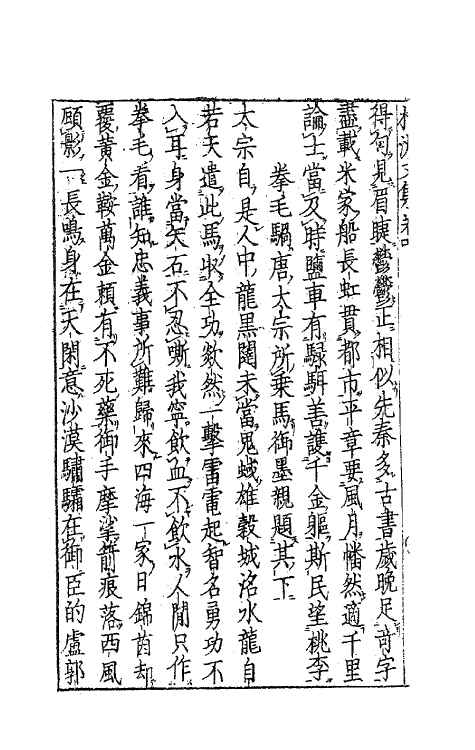 得句見眉睫鬱鬱正相似先秦多古書歲晚足奇字
盡載米家船長虹貫都市平章要風月幡然適千里
論士當及時鹽車有騄駬善護千金軀斯民望桃李
拳毛騧唐太宗所乘馬御墨親題其下
太宗自是人中龍黑闥未當鬼蜮雄穀城洺水龍自
若天遣此馬收全功欻然一擊雷電起智名勇功不
入耳身當矢石不忍嘶我寧飲血不飲水人間只作
拳毛看誰知忠義事所難歸來四海一家日錦茵却
覆黃金鞍萬金賴有不死藥御手摩挲箭痕落西風
顧影一長鳴身在天閑意沙漠驌驦在御臣的盧郭